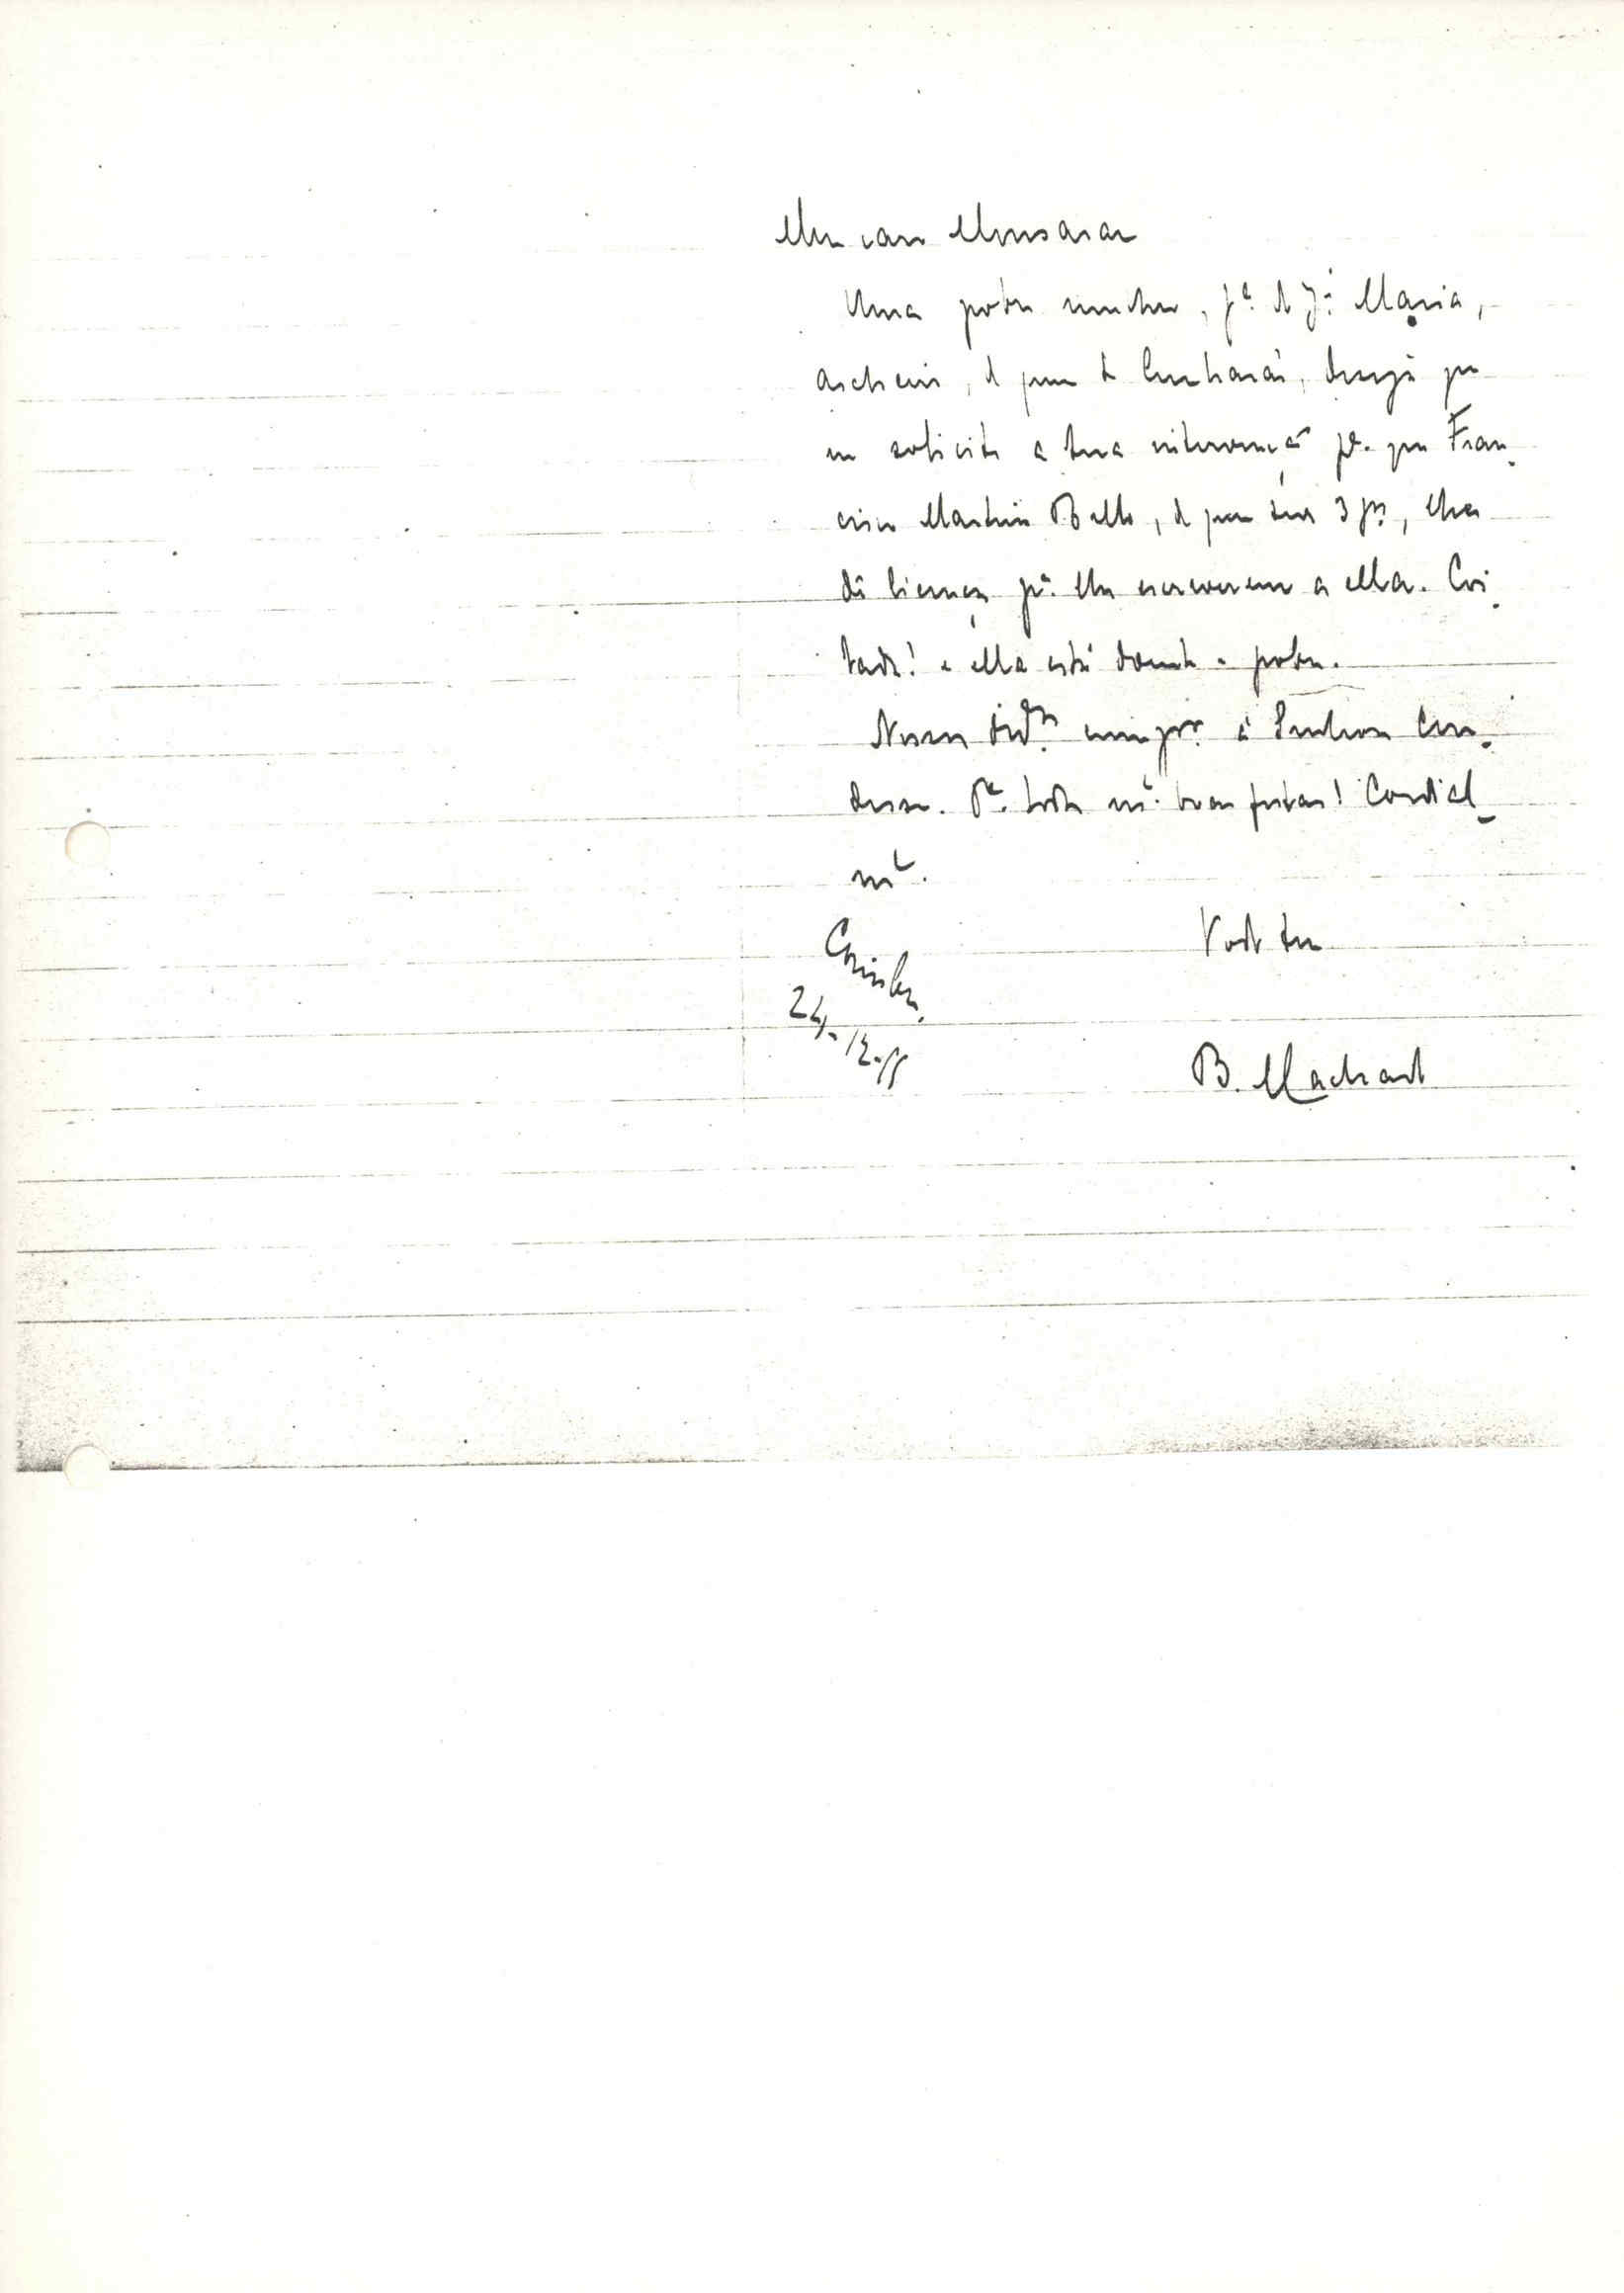 Meu caro Monsaraz
Uma pobre mulher, fª. de Jé Maria,
archeiro, d que te lembrarás, deseja que
eu solicite a tua intervenção pª. que Fran-
cisco Martins Bello, d quem teve 3 fos, lhes
dê licença pª. lhe escreverem a ella. Coi-
tada! e ella está doente e pobre.
Nossos cumprºs. á Senhora Con-
dessa. Pª. todos mtº. boas festas! Cordial-
mte.
Todo teu
Coimbra.
24-12-
B. Machado